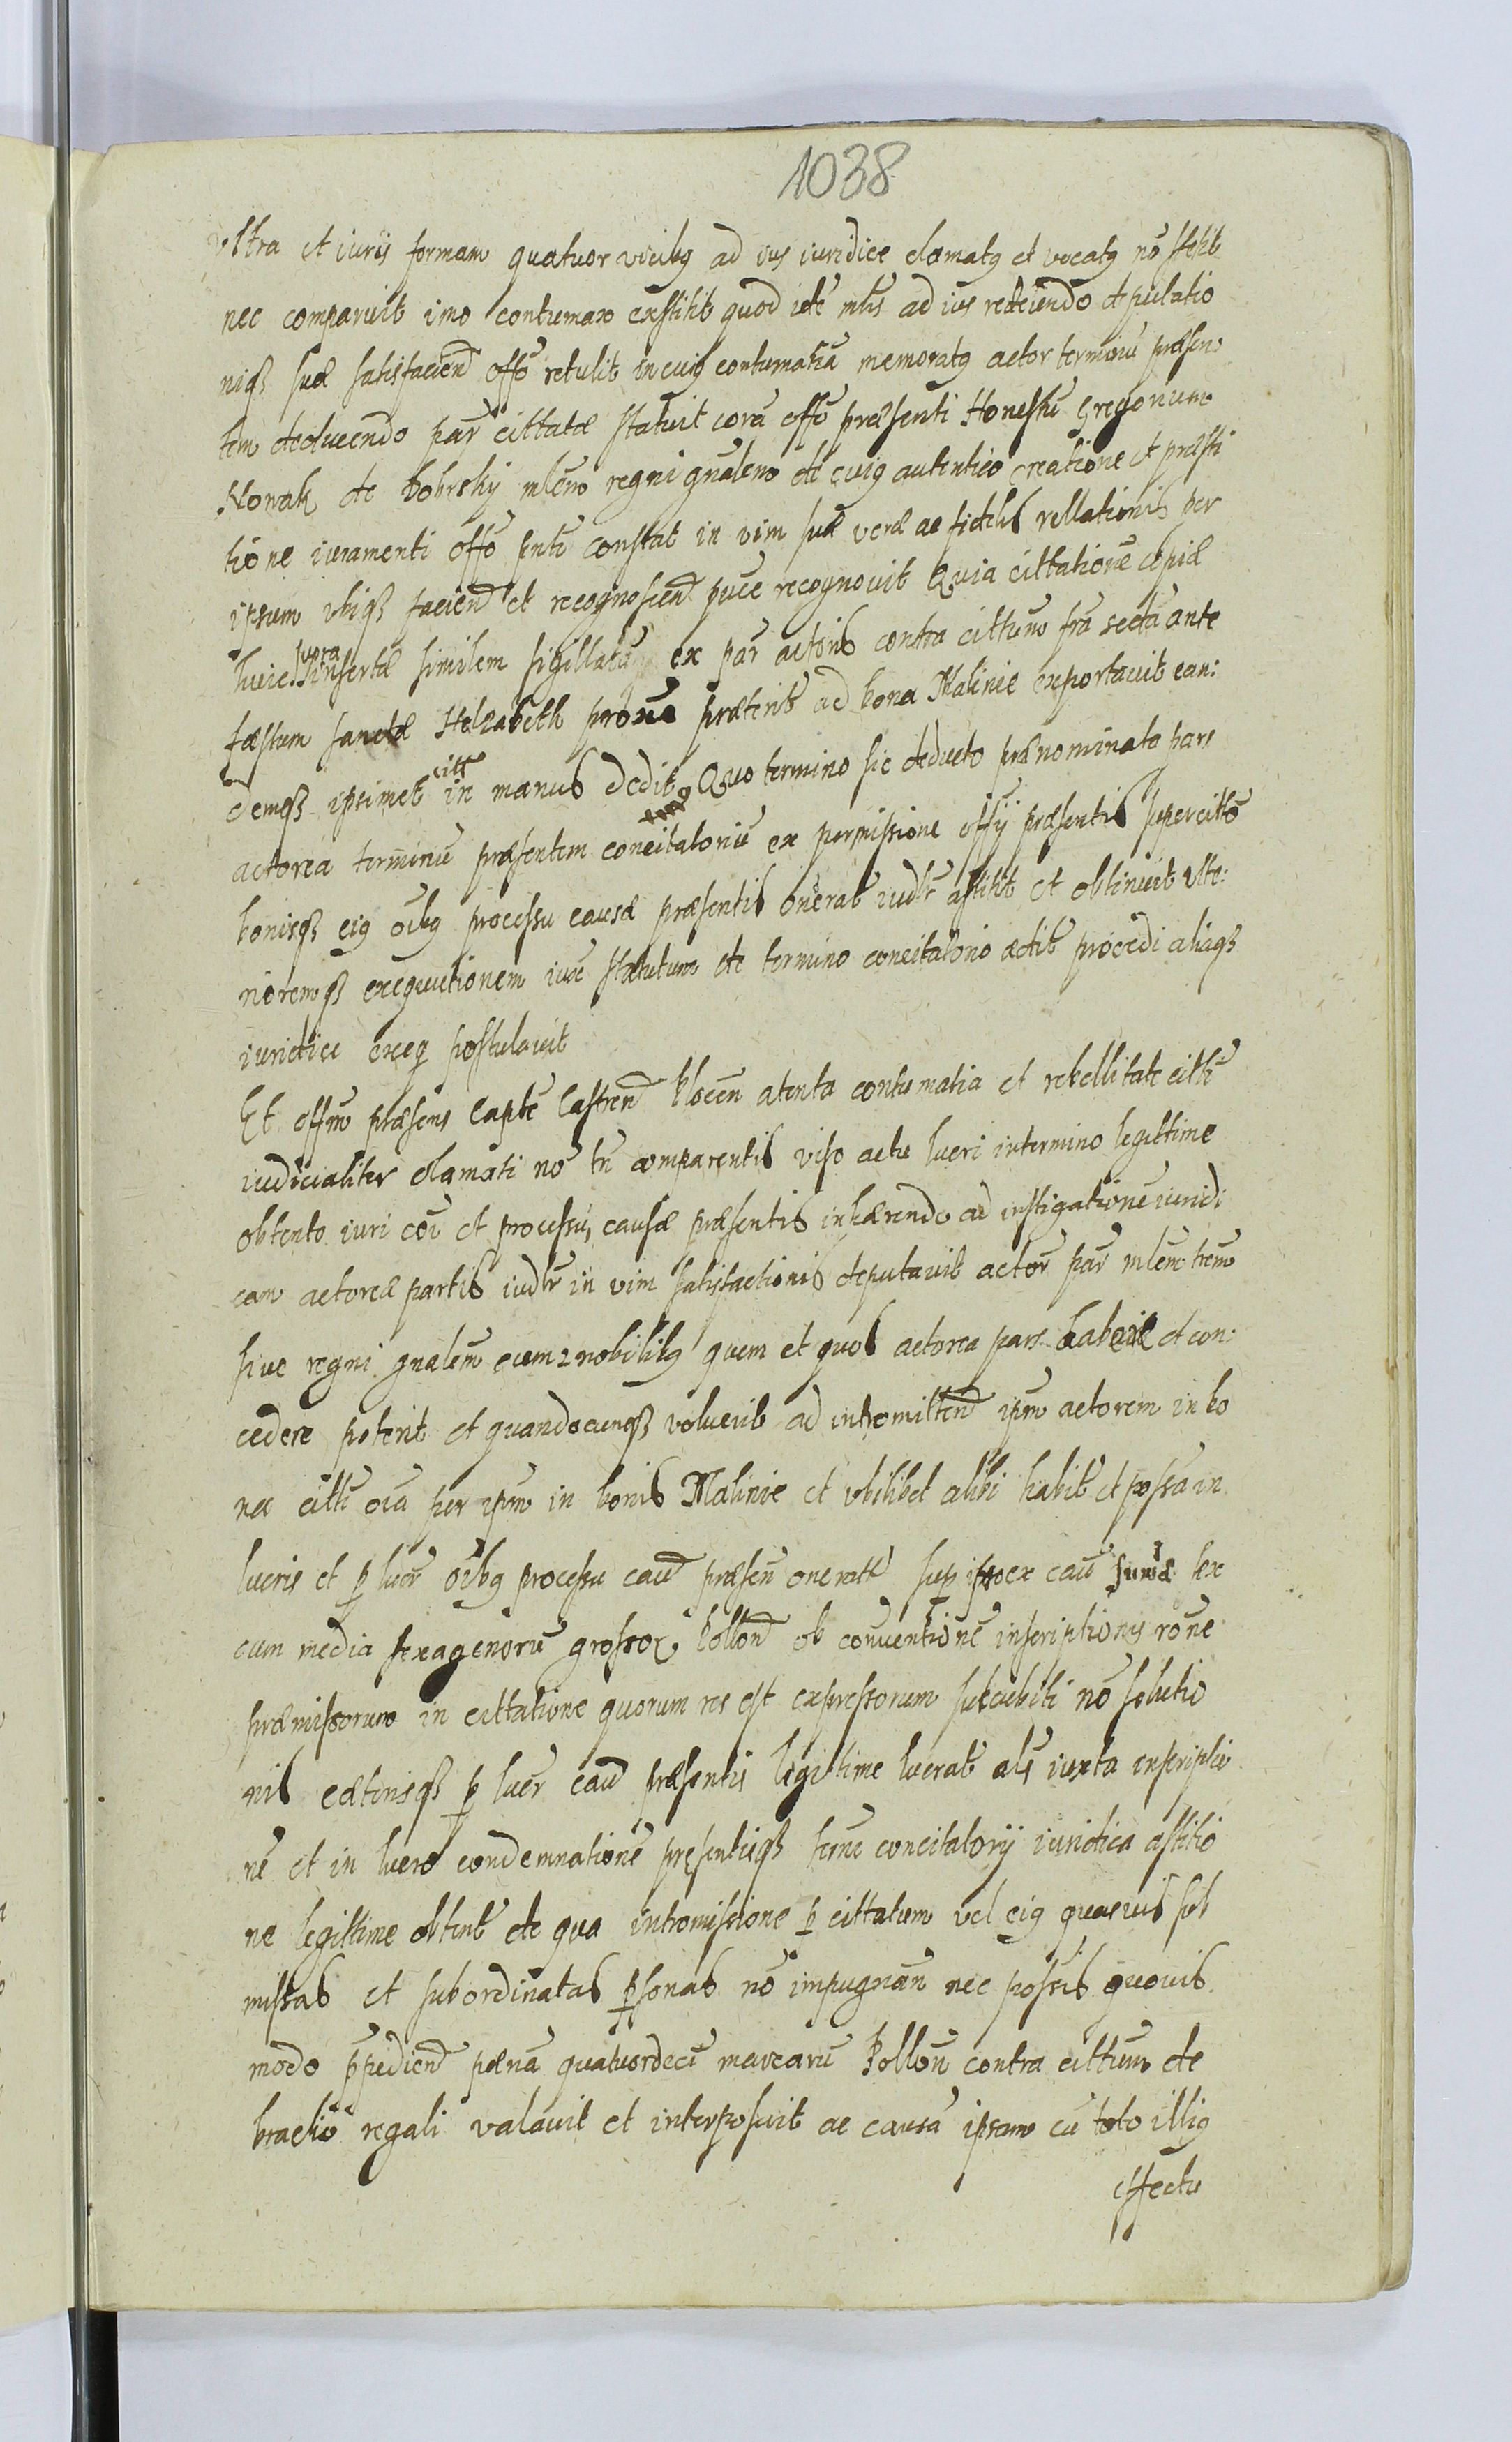 1038
ultra et iuris formam quatuor vicibꝫ ad ius iuridice clamatꝫ et vocatꝫ nō stetit
nec comparuit imo contumax exstitit quod idē mlis ad ius reddeundo deputatio
niqꝫ suæ satisfaciend offō retulit in cuiꝫ contumatiā memoratꝫ actor terminū præsen:
tem deducendo par cittatæ statuit corā offō præsenti Honestū Gregorium
Nowak de Dobrsky mlem regni gnalem de cuiꝫ autentico creatione et præsti
tione iuramenti offō pnti constat in vim suæ veræ ac fidelis rellationis per
ipsum ubiqꝫ faciend et recognoscend puce recognovit Quia cittationē copiæ
huic supra insertæ similem sigillatā ex par actoris contra cittum fra sectā ante
fæstum sanctæ Helzabeth proxe præterit ad bona Malinie exportavit ean:
demqꝫ ipsimet citt in manus dedit Quo termino sic deducto prænominata pars
actorea terminū præsentem concitatoriū ex permissione offii præsentis super citto
bonisqꝫ eiꝫ oibꝫ processu causæ præsentis onerat iudr astitit et obtinuit ulte:
rioremqꝫ exequutionem iure statutum de termino concitatorio ædit procedi aliaqꝫ
iuridice exeq postulavit
Et offm præsens Capte Castren Blocen atenta contumatia et rebellitate citti
iudicialiter clamati nō tn comparentis viso actu lucri in termino legittime
obtento iuri coi et processui causæ præsentis inhærendo ad instigationē iuridi
cam actoreæ partis iudr in vim satisfactionis deputavit actor par mlem trem
sive regni gnalem cum 2 nobilibꝫ quem et quos actorea pars habere et con:
cedere poterit et quandocunqꝫ voluerit ad intromittend ipm actorem in bo
na citti oia per ipm in bonis Malinie et ubilibet alibi habit et possa in
lucris et p lucr oibꝫ processu cau præsen oneratt sup ipso ex cau sumæ sex
cum media sexagenorū grossor Pollon ob conventionē inscriptionis rone
præmissorum in cittatione quorum res est expressorum subcubiti nō solutio
nis cæterisqꝫ p lucr cau præsentis legittime lucrat als iuxta inscriptio
nē et in lucro condemnationē presentisqꝫ term concitatorii iuridica astitio
ne legittime obtent de qua intromissione p cittatum vel eiꝫ quasvis sub
missas et subordinatas psonas nō impugnan nec possis quovis
modo ppediend pœnā quatuordecī marcarū Pollon contra cittum de
brachio regali valavit et interposuit ac causā ipsam cū toto illiꝫ
effectu